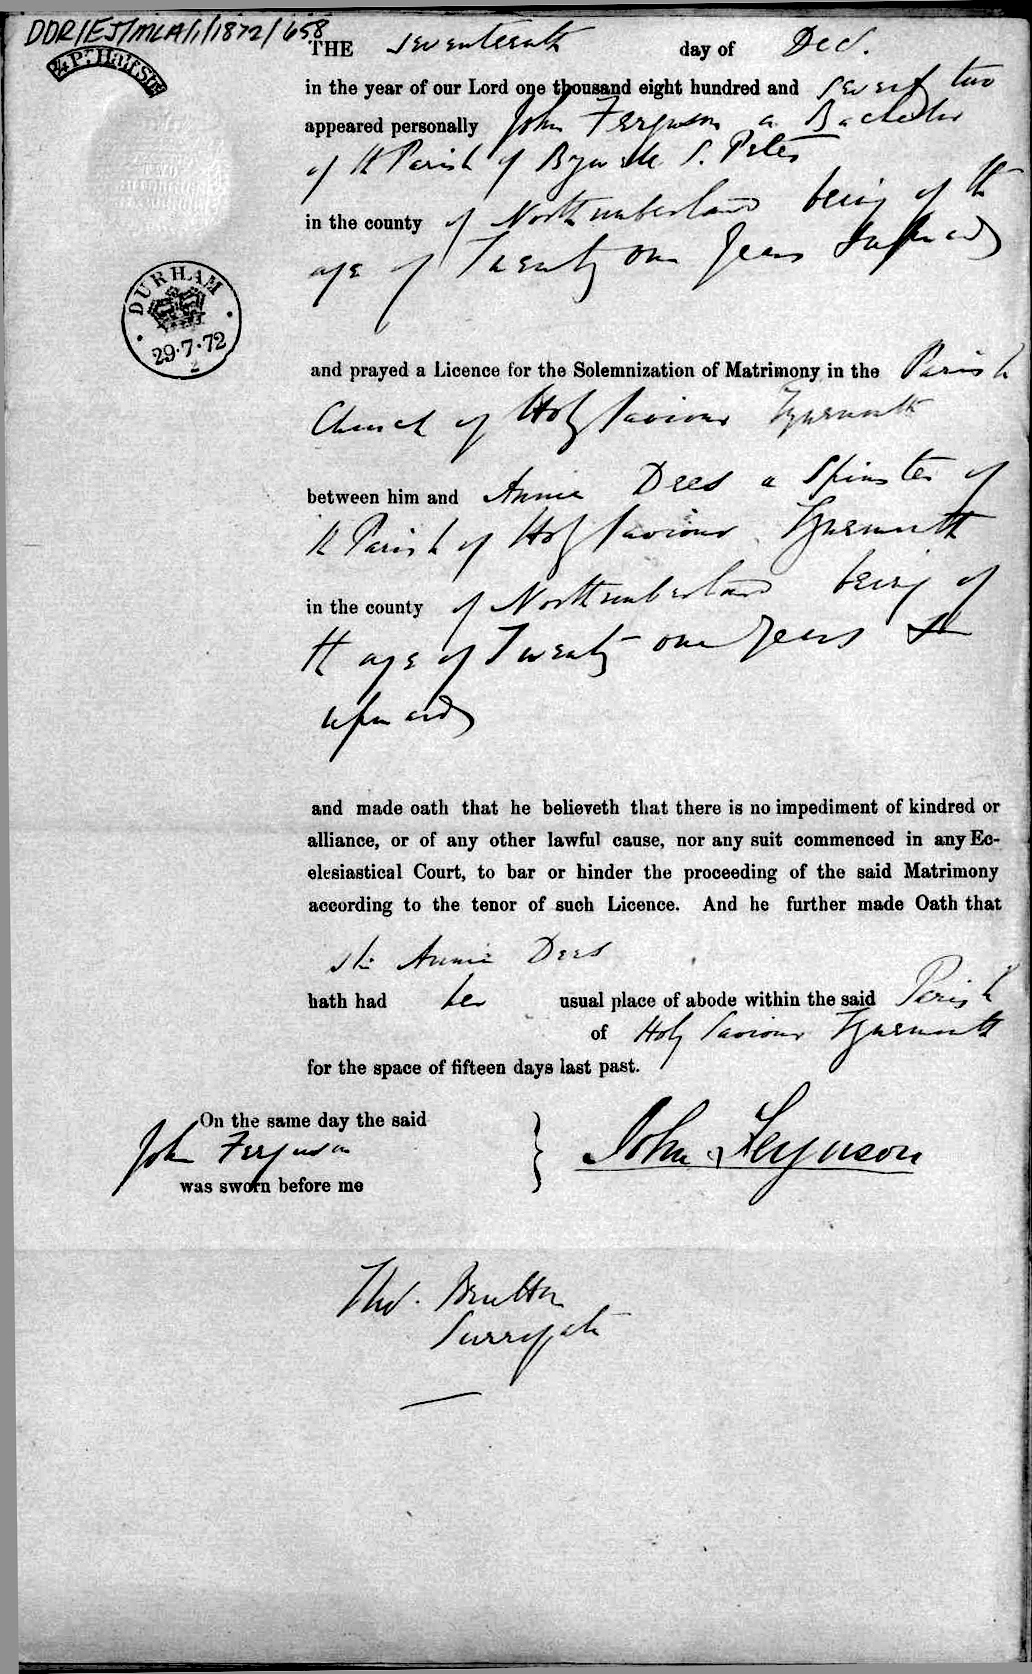 DDR/EJ/MLA/1/1872/658
THE seventeenth day of Decr.
in the year of our Lord one thousand eight hundred and seventy two
appeared personally John Ferguson a Bachelor
of the Parish of Bywell S. Peter
in the county of Northumberland being of the
age of Twenty one Years & upwards
DURHAM
29·7·72
2
and prayed a Licence for the Solemnization of Matrimony in the Parish
Church of Holy Saviour Tynemouth
between him and Annie Dees a Spinster of
the Parish of Holy Saviour Tynemouth
in the county of Northumberland being of
the age of Twenty one Years &
upwards
and made oath that he believeth that there is no impediment of kindred or
alliance, or of any other lawful cause, nor any suit commenced in any Ec-
clesiastical Court, to bar or hinder the proceeding of the said Matrimony
according to the tenor of such Licence. And he further made Oath that
she Annie Dees
hath had her usual place of abode within the said Parish
of Holy Saviour Tynemouth
for the space of fifteen days last past.
On the same day the said
John Ferguson
was sworn before me
John Ferguson
Thos. Brutton
Surrogate